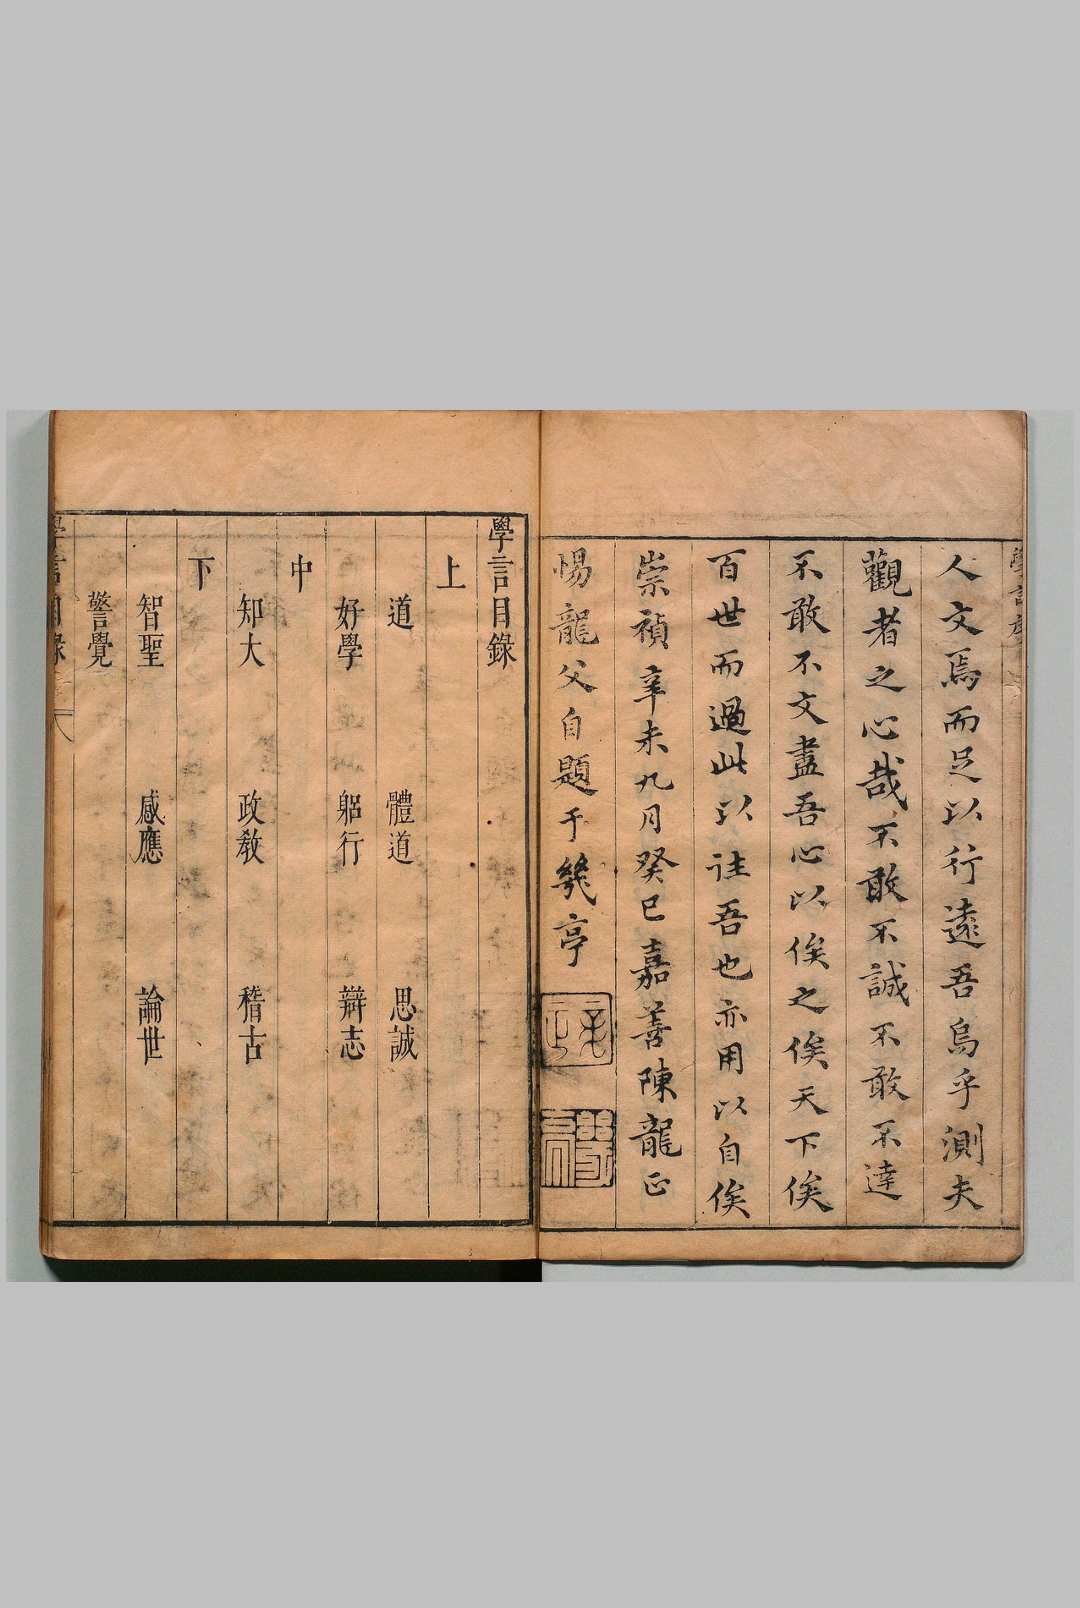 人文焉而足以行遠吾烏乎測夫
觀者之心哉不敢不誠不敢不達
不敢不文盡吾心以俟之俟天下俟
百世而過此以往吾也亦用以自俟
崇禎辛未九月癸巳嘉善陳龍正
惕龍父自題于幾亭
學言目錄
上
道 體道 思誠
好學 躬行 辯志
中
知大 政教 稽古
下
智聖 感應 論世
警覺
學言目錄